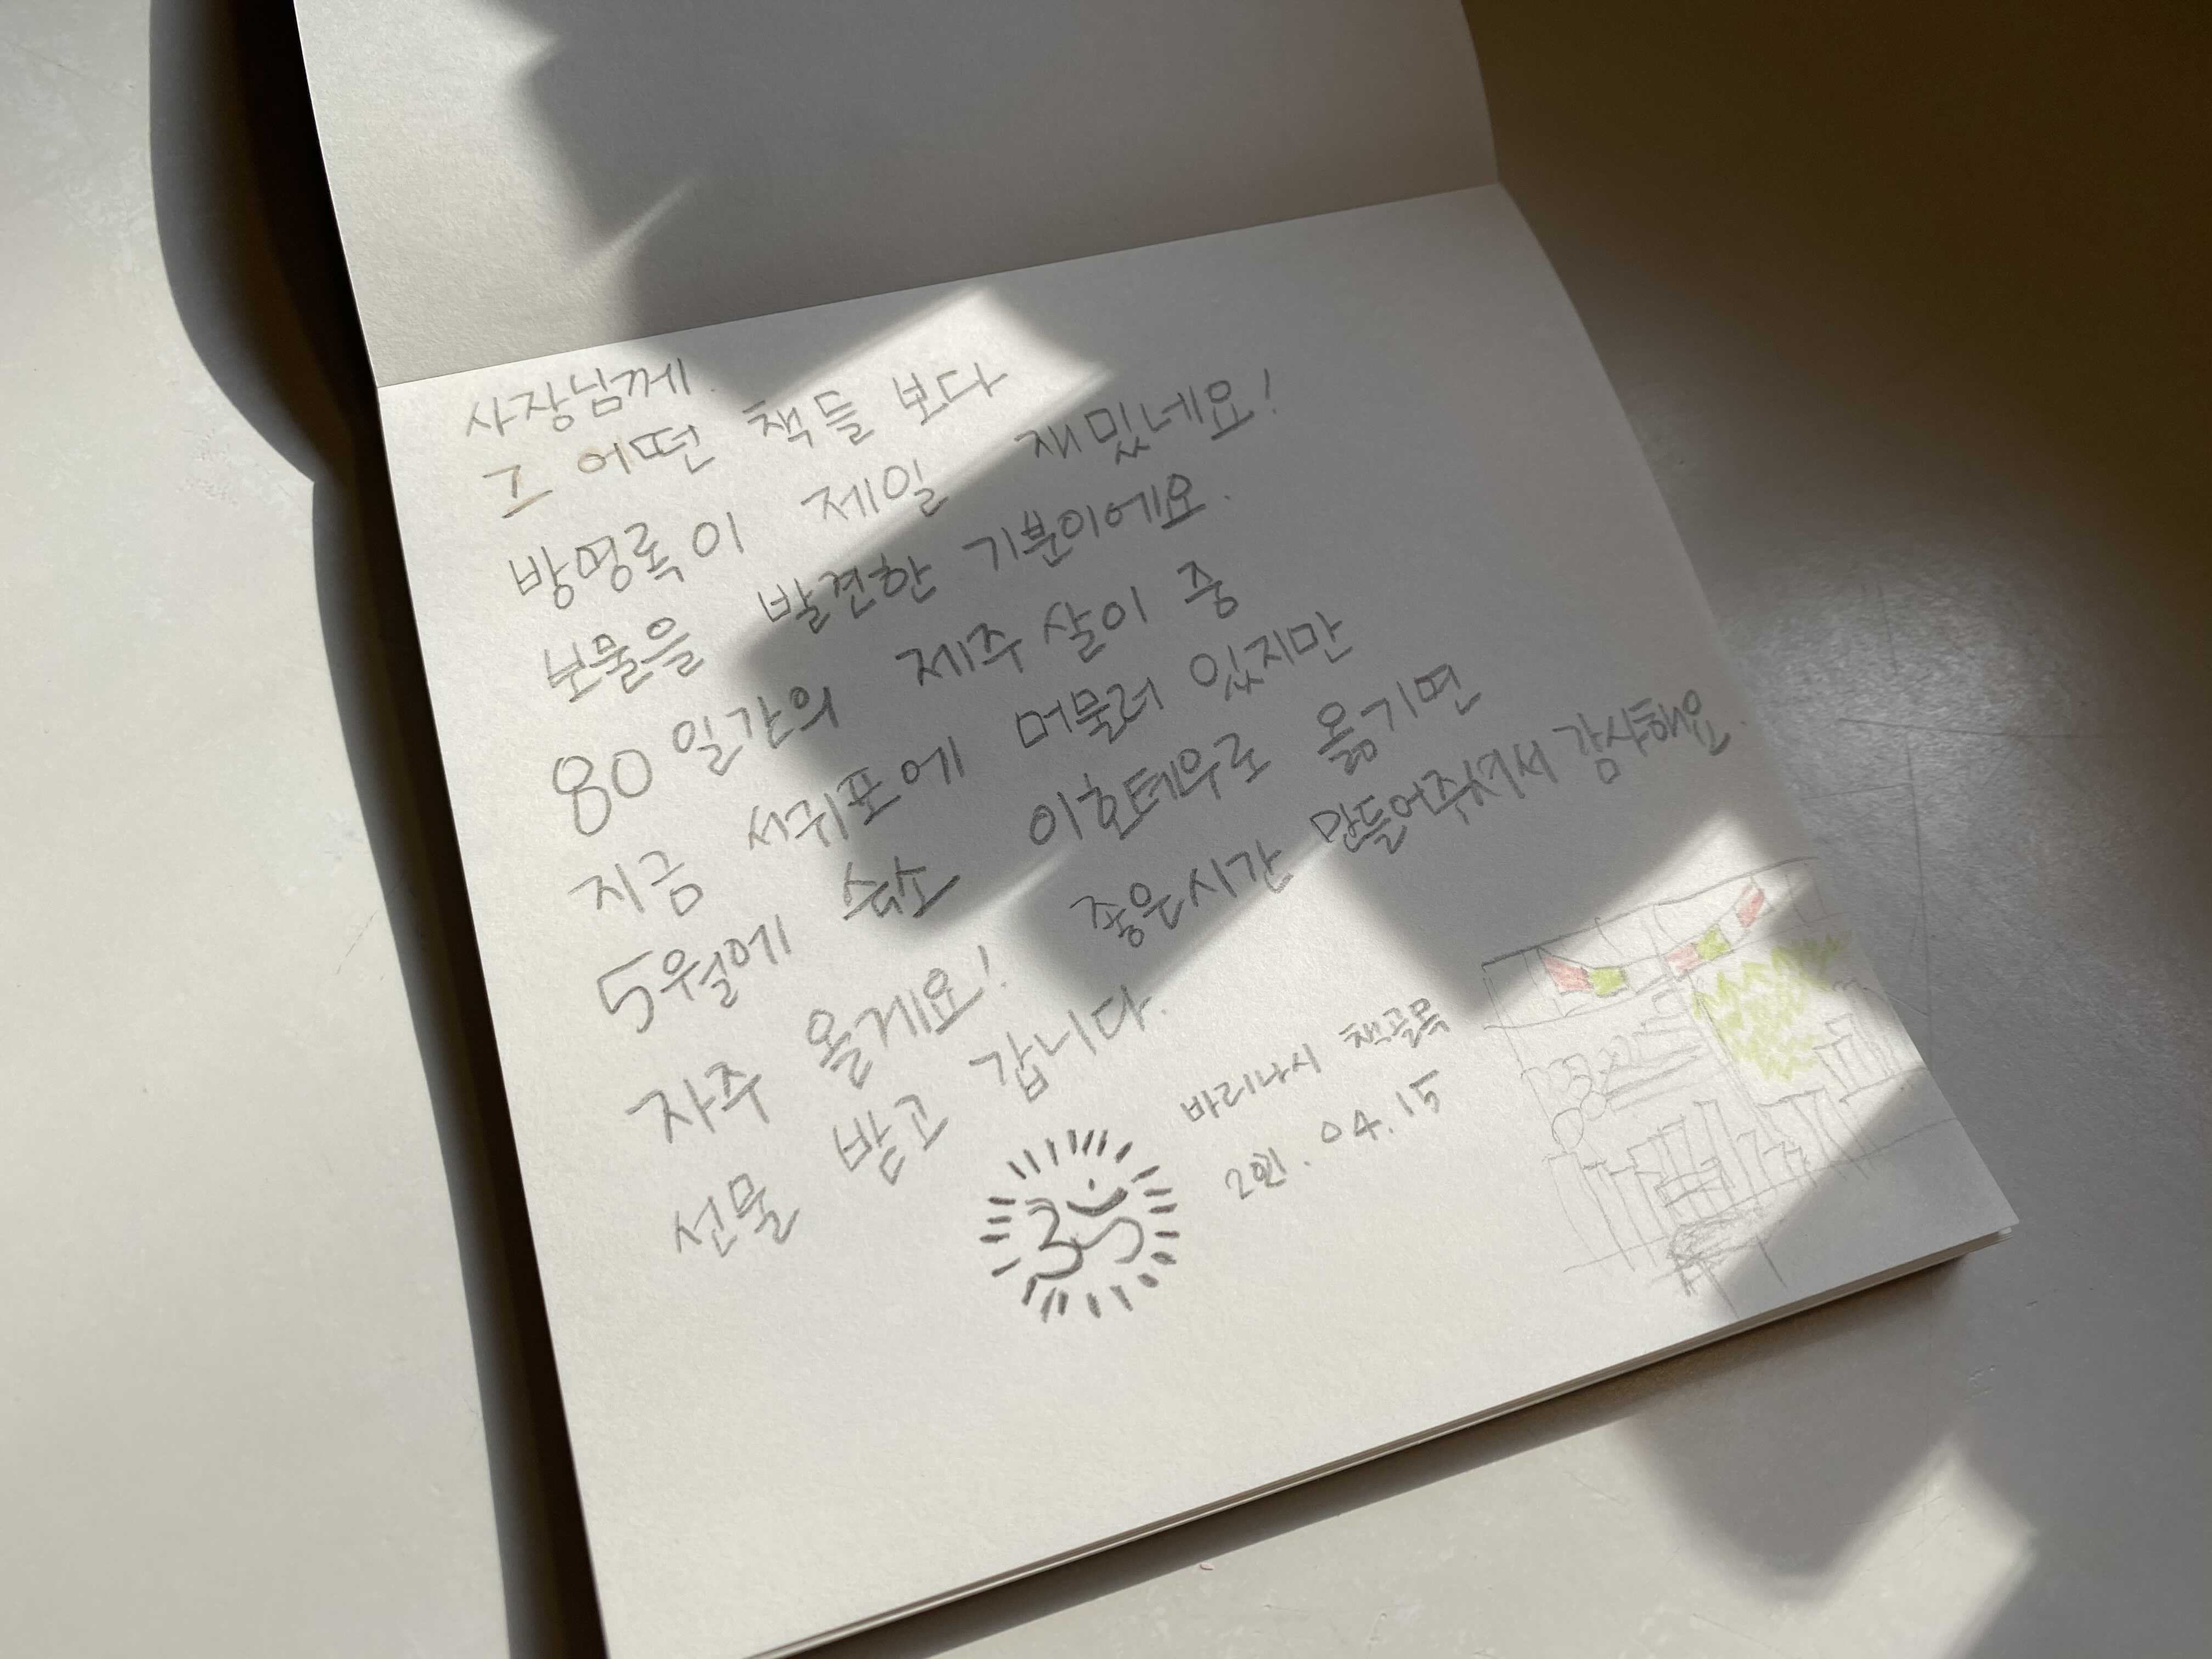 사장님께.
그 어떤 책들 보다
방명록이 제일 재밌네요!
보물을 발견한 기분이에요.
80일간의 제주 살이 중
지금 서귀포에 머물러 있지만
5월에 숙소 이호테우로 옮기면
자주 올게요! 좋은시간 만들어주셔서 감사해요.
선물 받고 갑니다.
바리나시 책골목
04.15